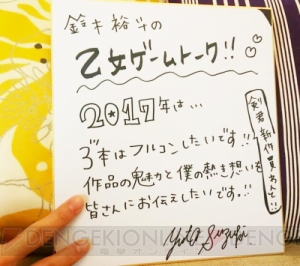 鈴木裕斗の
乙女ゲームトーク!!
2017年は…
3本はフルコンしたいです!!
作品の魅力と僕の熱き想いを
皆さんにお伝えしたいです!!
Yuto Suzuki
DENGEKIONLINE